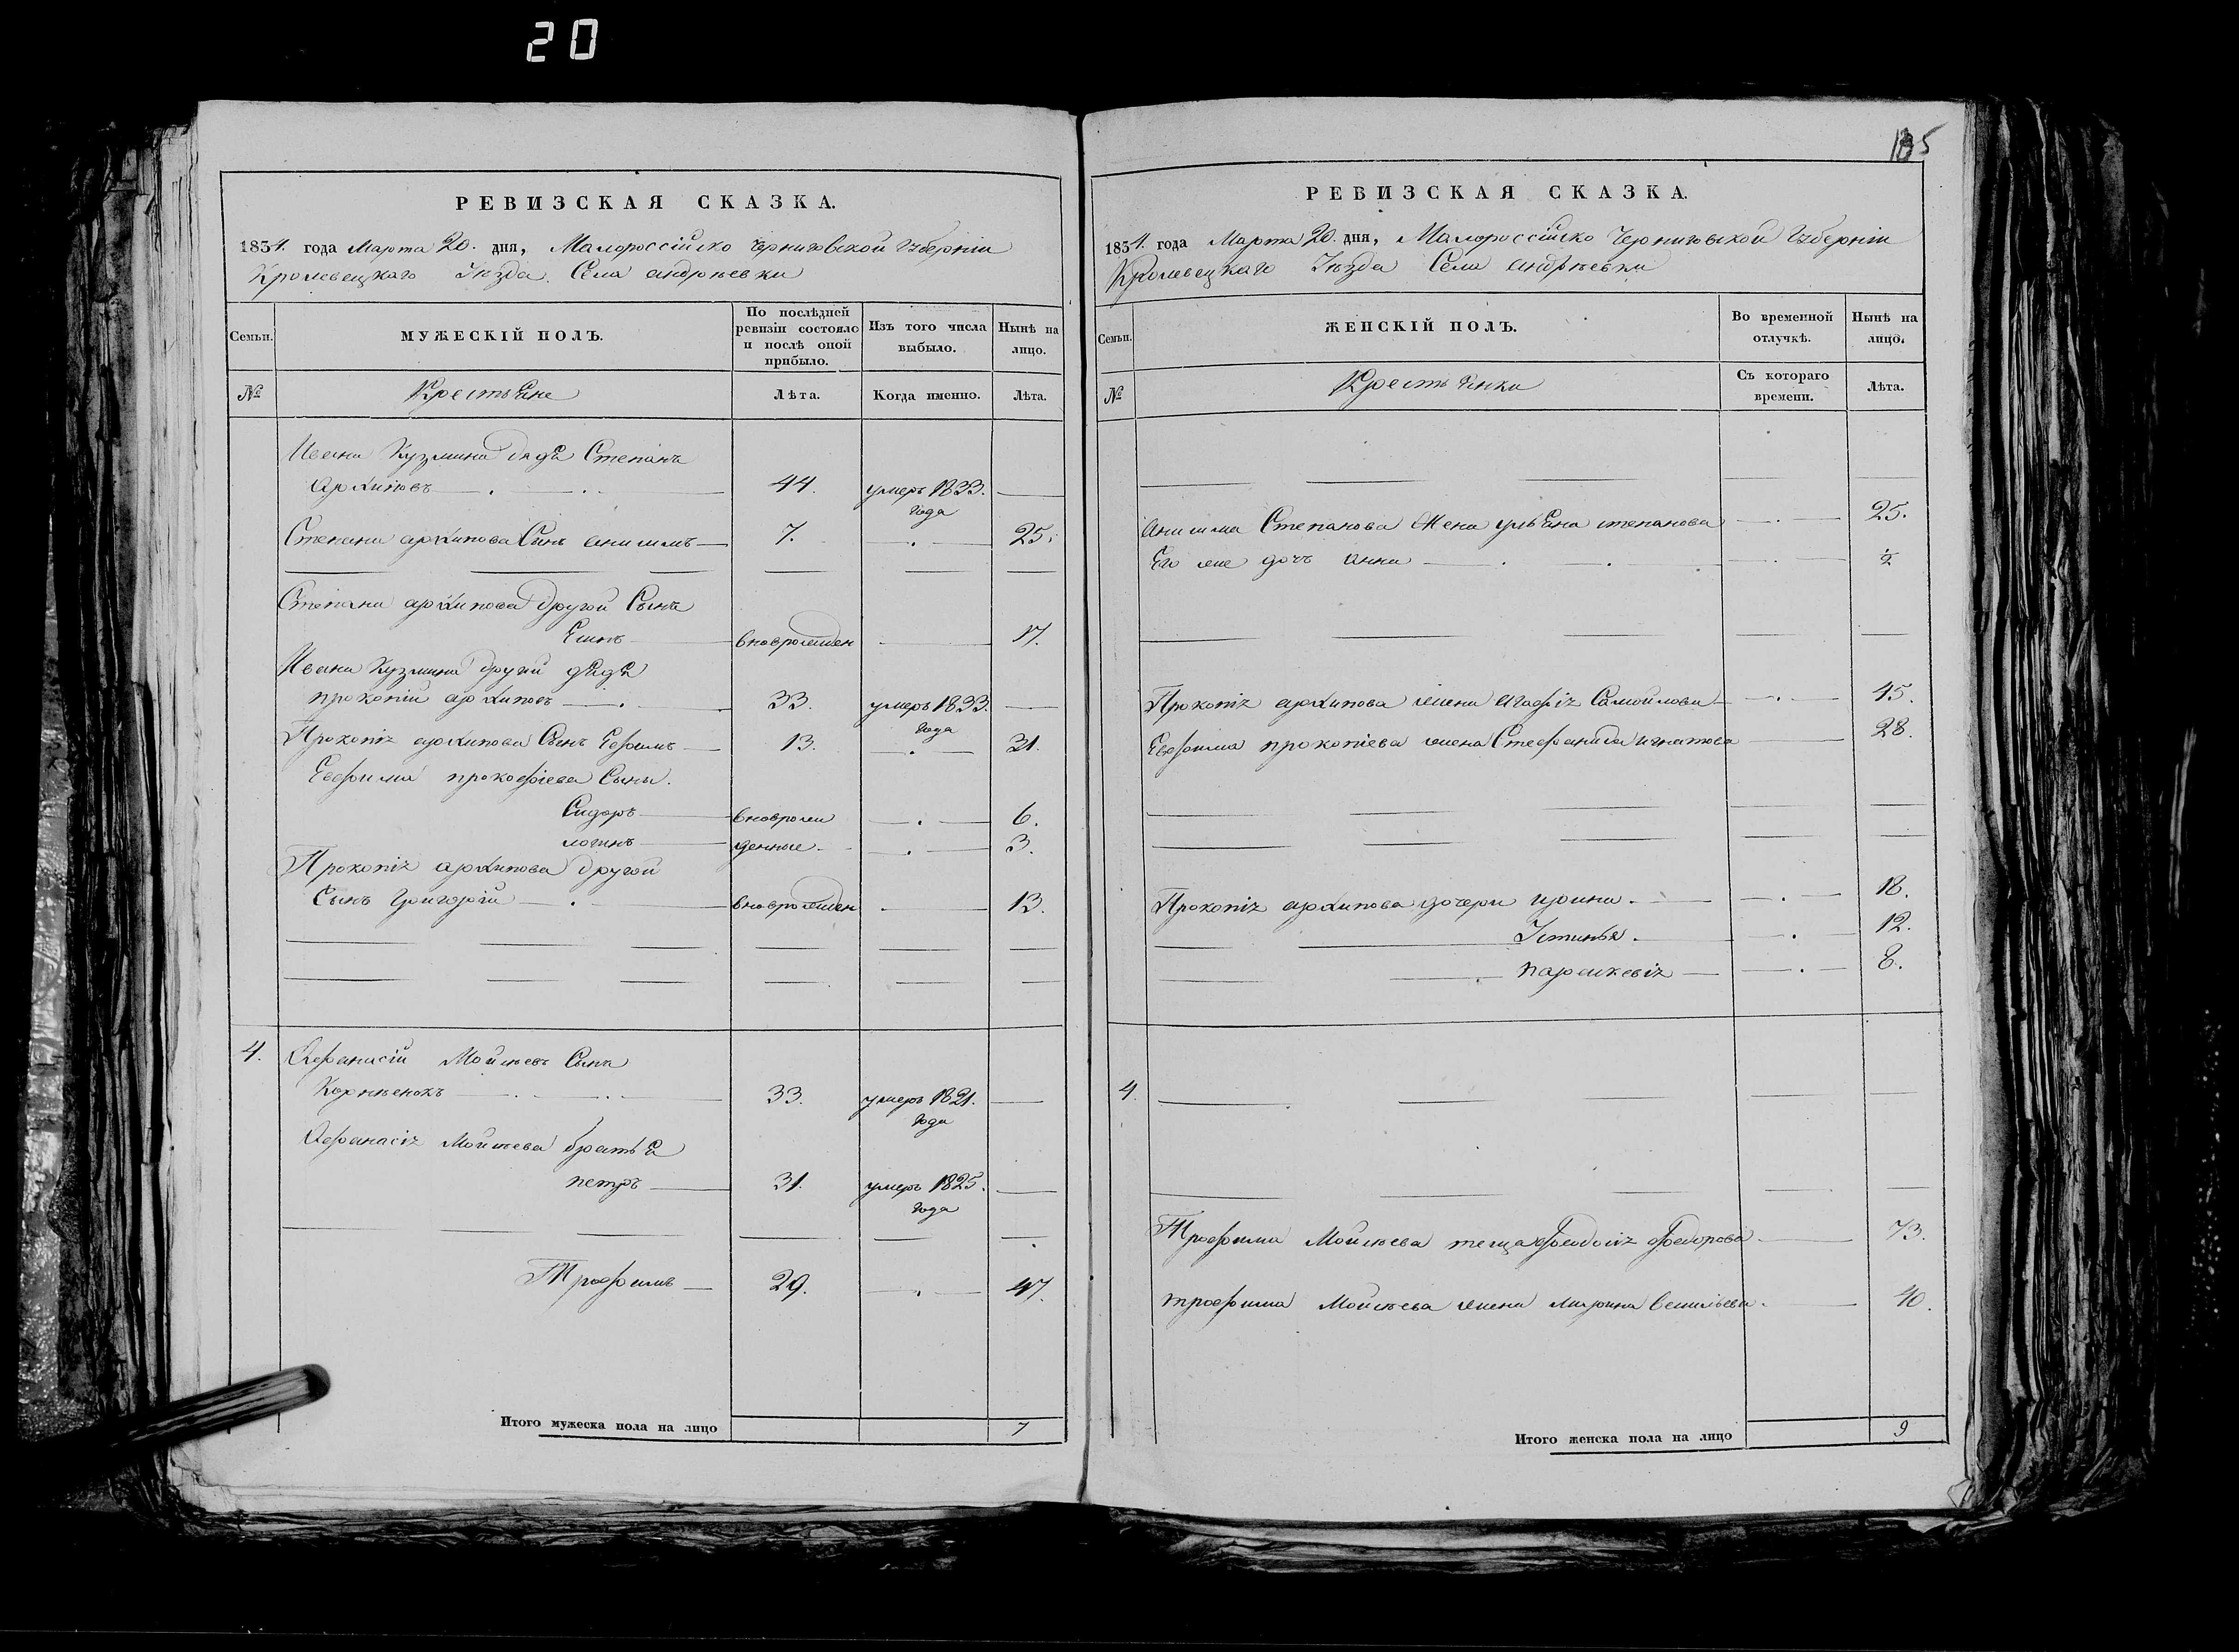 20
РЕВИЗСКАЯ СКАЗКА.
1834. года Марта 20. дня, Малороссійско Черниговской Губерніи
Кролевецкаго Уезда. Села андреевки
Семьи.
МУЖЕСКІЙ ПОЛЪ.
По послѣдней ревизіи состояло и послѣ оной прибыло.
Изъ того числа выбыло.
Нынѣ на лицо.
№
Крестьяне
Лѣта.
Когда именно.
Лѣта.
Ивана Кузмина дядя Степанъ
архиповъ 44. умеръ 1833. года
Степана архипова Сынъ анисимъ 7. 25.
Степана архипова другой Сынъ
вноврожден 17.
Ивана Кузмина другий дядя
прокопий архиповъ 33. умеръ 1833. года
Прокопія архипова Сынъ Ефимъ 13. 31.
Евфима прокофіева Сыны.
Сидоръ вноврож 6.
логинъ денные 3.
Прокопія архипова другой
Сынъ Григорій вноврожден 13.
4. Афанасій Мойсеевъ Сынъ
Корнѣенокъ 33. умеръ 1821. года
Афанасія Мойсеева братья
петръ 31. умеръ 1825. года
Трофимъ 29. 47.
Итого мужеска пола на лицо 7
135
РЕВИЗСКАЯ СКАЗКА.
1834. года Марта 20. дня, Малороссійско Черниговской Губерніи
Кролевецкаго Уезда Села андреевки
Семьи.
ЖЕНСКІЙ ПОЛЪ.
Во временной отлучкѣ.
Нынѣ на лицо.
№
Крестьянки
Съ котораго времени.
Лѣта.
анисима Степанова Жена ульяна степанова 25.
Его же дочъ анна ½
Прокопія архипова жена агафія Самойлова 45.
Евфима прокопіева жена Стефанида игнатова 28.
Прокопія архипова дочери ирина. 18.
Устинья. 12.
параскевія 8.
4.
Трофима Мойсеева теща феодосія федорова 73.
трофима Мойсеева жена марина васильева. 40.
Итого женска пола на лицо 9